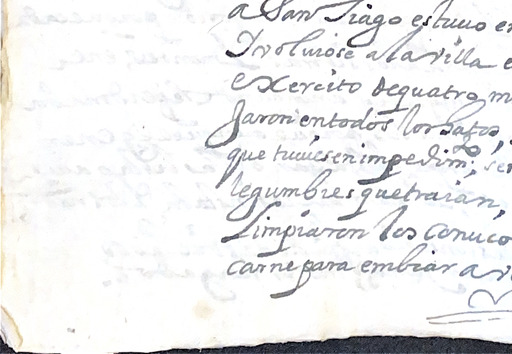 a San Tiago estuuo en
Y voluiose a la villa e
exercito de quatro m
Jaron en todos los
que tuuiesen impedim; ser
legumbres que traian,
Limpiaron los conuco
carne para embiar a